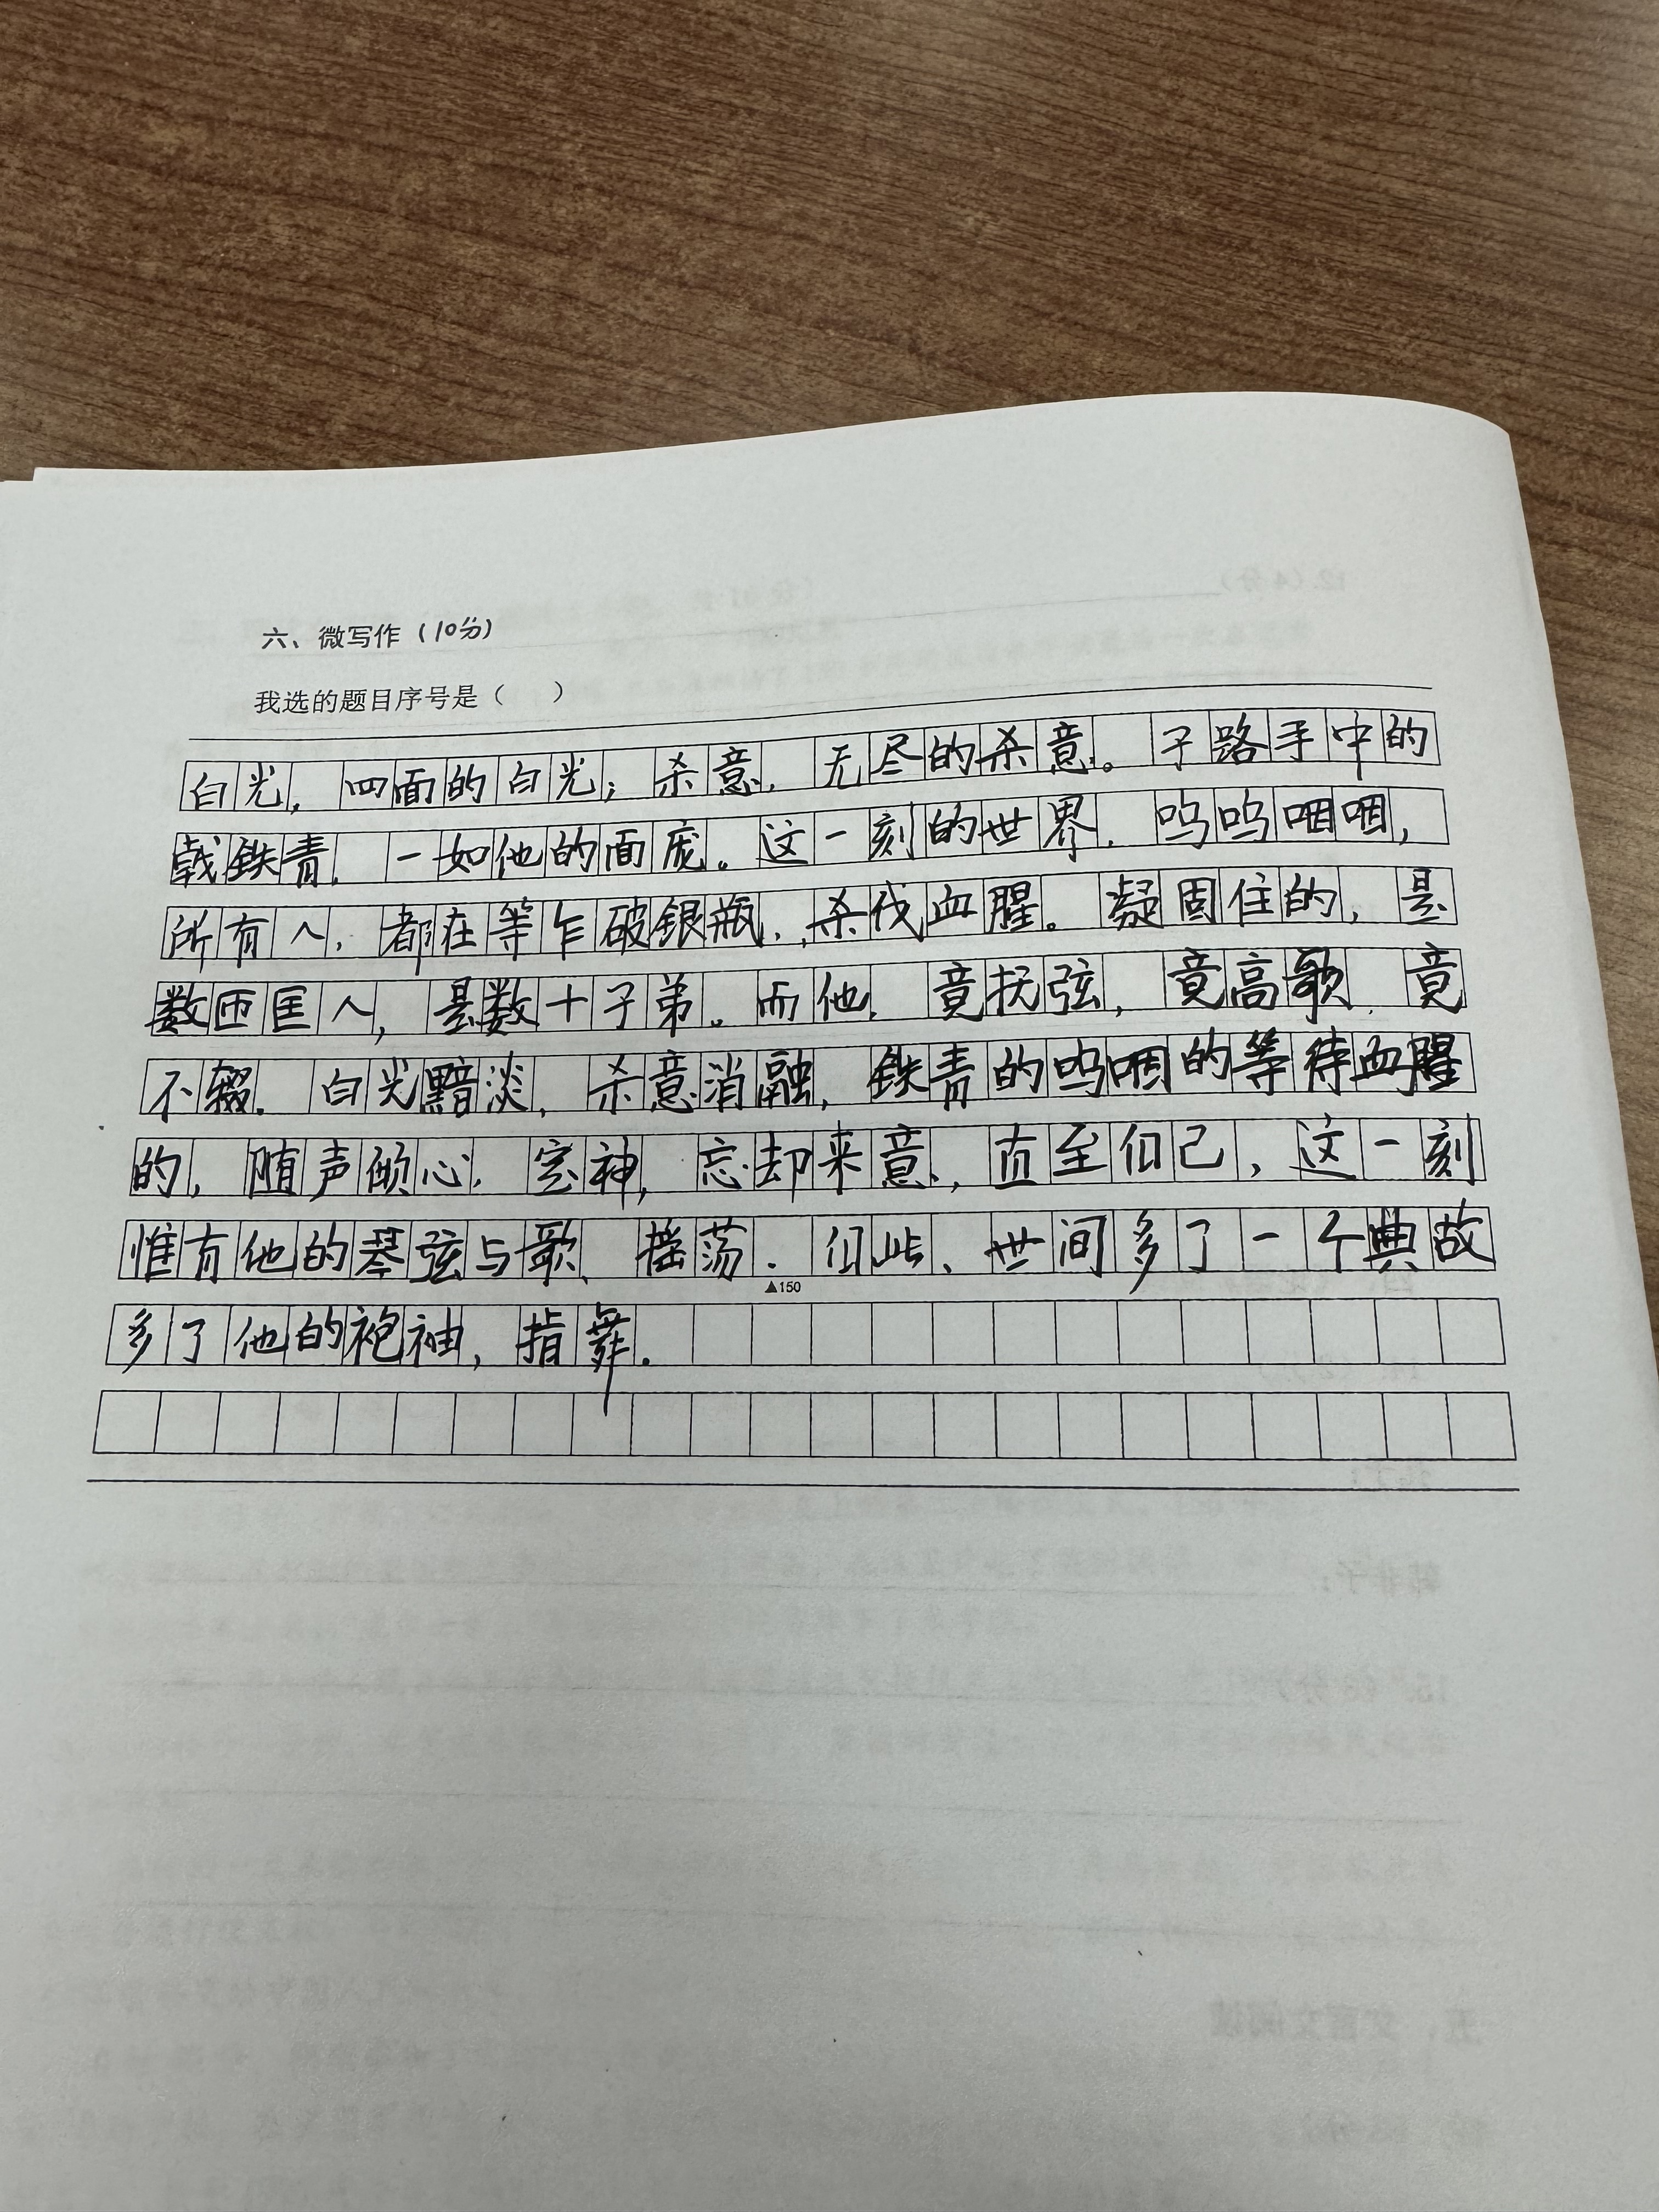 六、微写作（10分）
我选的题目序号是（　）
白光，四面的白光；杀意，无尽的杀意。子路手中的
戟鉄青，一如他的面庞。这一刻的世界，呜呜咽咽，
所有人，都在等乍破银瓶，杀伐血腥。凝固住的，是
数匝匡人，是数十子弟。而他，竟抚弦，竟高歌，竟
不辍。白光黯淡，杀意消融，鉄青的呜咽的等待血腥
的，随声倾心，定神，忘却来意，直至们己，这一刻
惟有他的琴弦与歌、摇荡．们此、世间多了一个典故
▲150
多了他的袍袖，指舞．